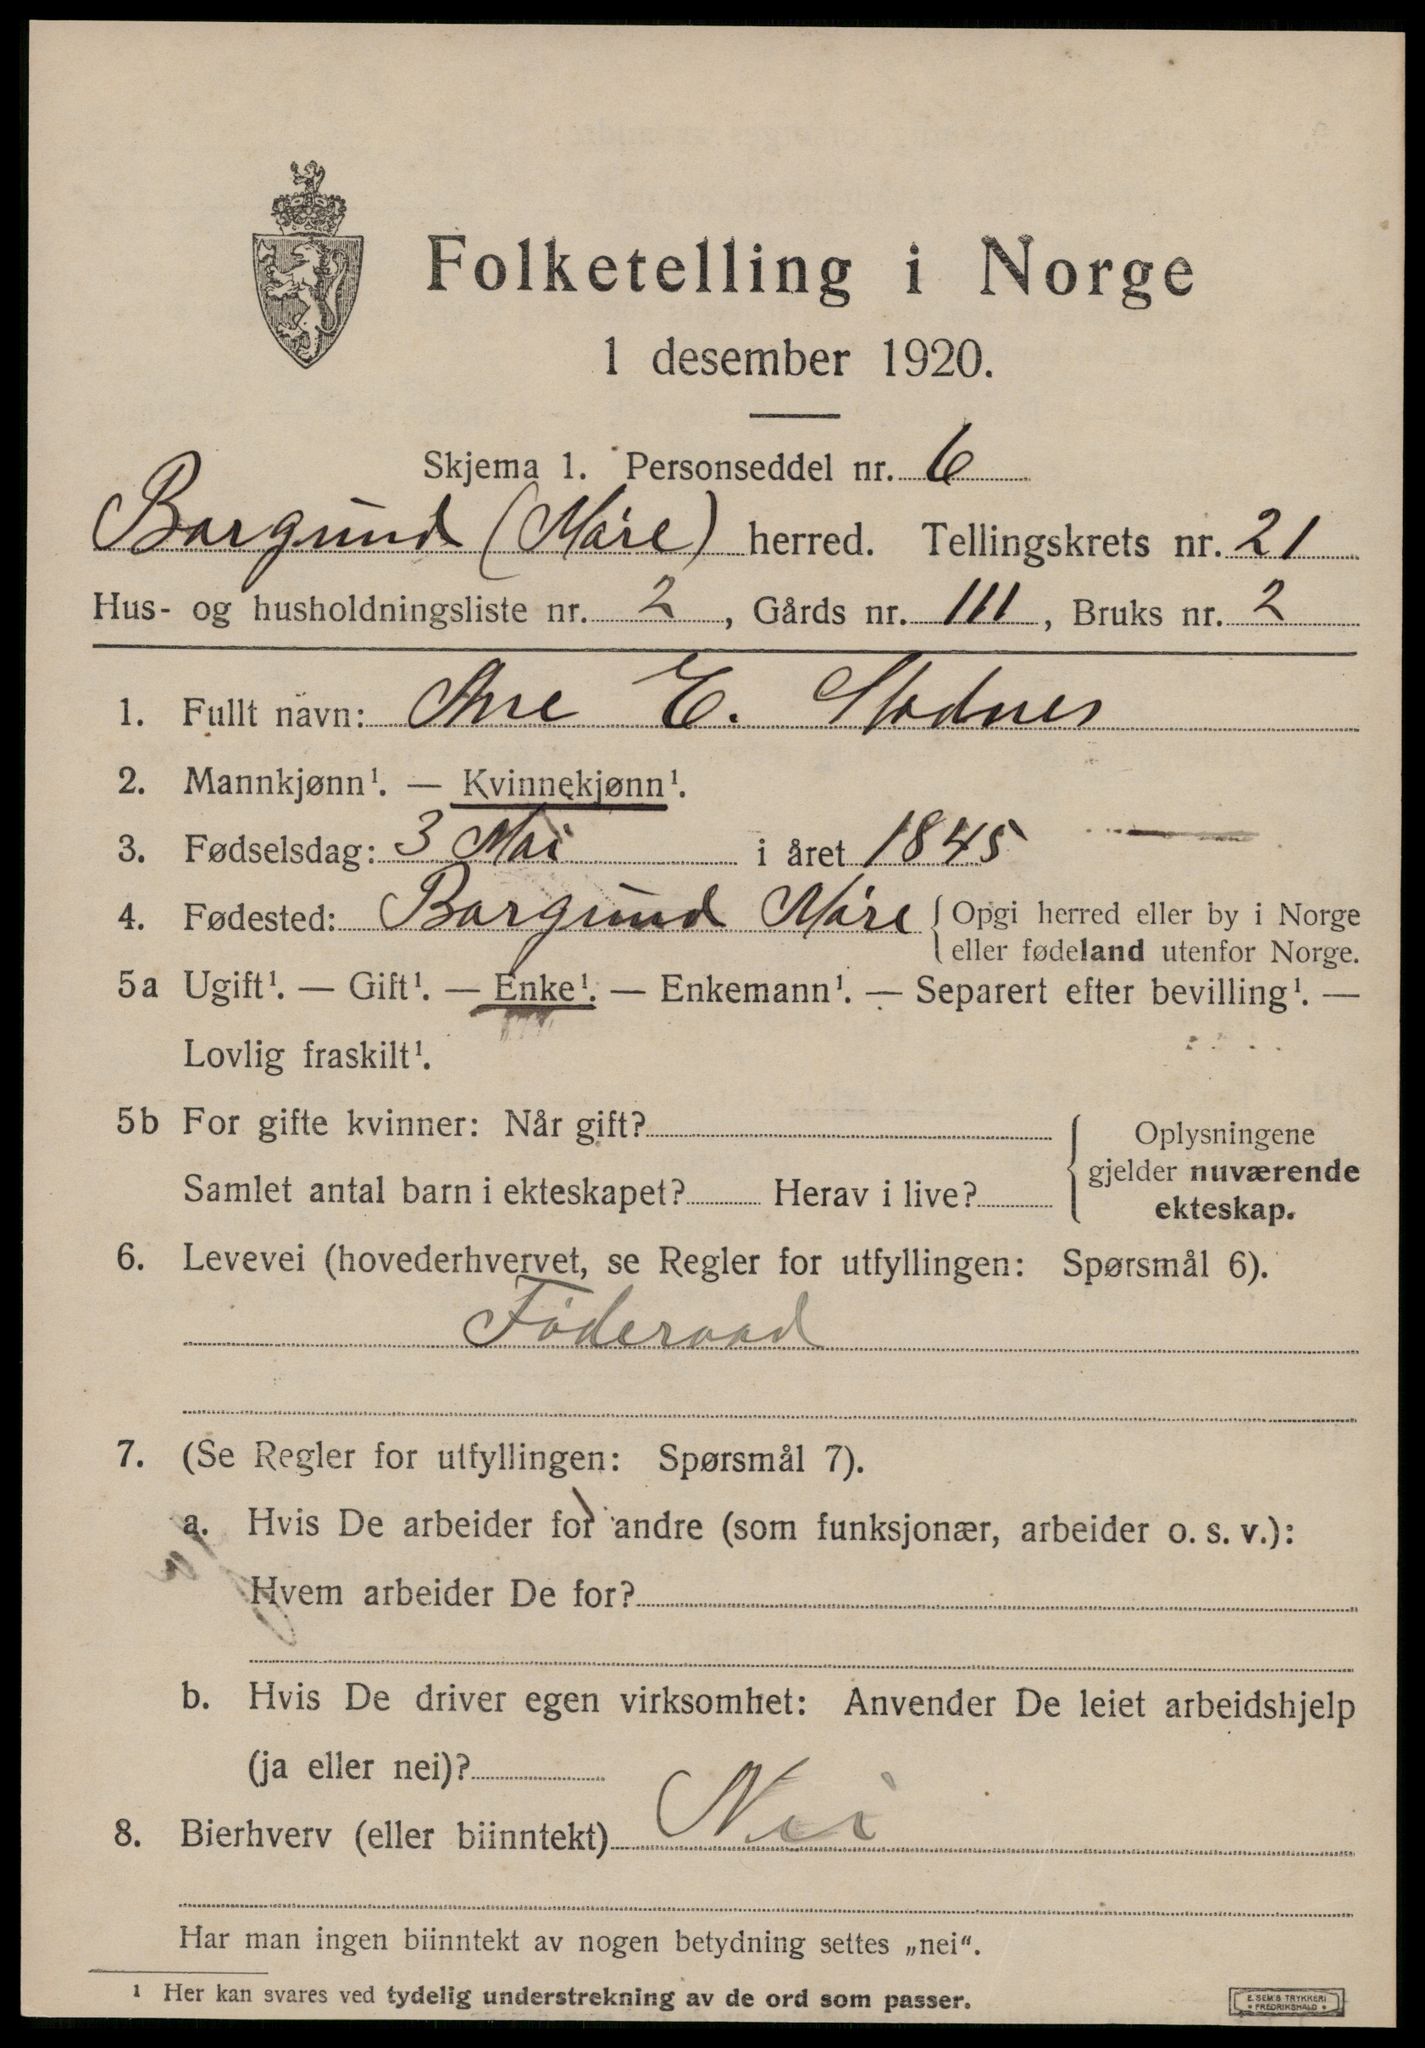 Folketelling i Norge
1 desember 1920.
Skjema 1. Personseddel nr. 6
Borgund (Møre) herred. Tellingskrets nr. 21
Hus- og husholdningsliste nr. 2, Gårds nr. 111, Bruks nr. 2
1. Fullt navn: Ane E. Stadnes
2. Mannkjønn¹. — Kvinnekjønn¹.
3. Fødselsdag: 3 Mai i året 1845
4. Fødested: Borgund Møre { Opgi herred eller by i Norge
eller fødeland utenfor Norge.
5a Ugift¹. — Gift¹. — Enke¹. — Enkemann¹. — Separert efter bevilling¹. —
Lovlig fraskilt¹.
5b For gifte kvinner: Når gift?
Samlet antal barn i ekteskapet? Herav i live?
{ Oplysningene
gjelder nuværende
ekteskap.
6. Levevei (hovederhvervet, se Regler for utfyllingen: Spørsmål 6).
Föderaad
7. (Se Regler for utfyllingen: Spørsmål 7).
a. Hvis De arbeider for andre (som funksjonær, arbeider o. s. v.):
Hvem arbeider De for?
b. Hvis De driver egen virksomhet: Anvender De leiet arbeidshjelp
(ja eller nei)?
8. Bierhverv (eller biinntekt) Nei
Har man ingen biinntekt av nogen betydning settes „nei“.
¹ Her kan svares ved tydelig understrekning av de ord som passer.
E. SEM'S TRYKKERI
• FREDRIKSHALD •